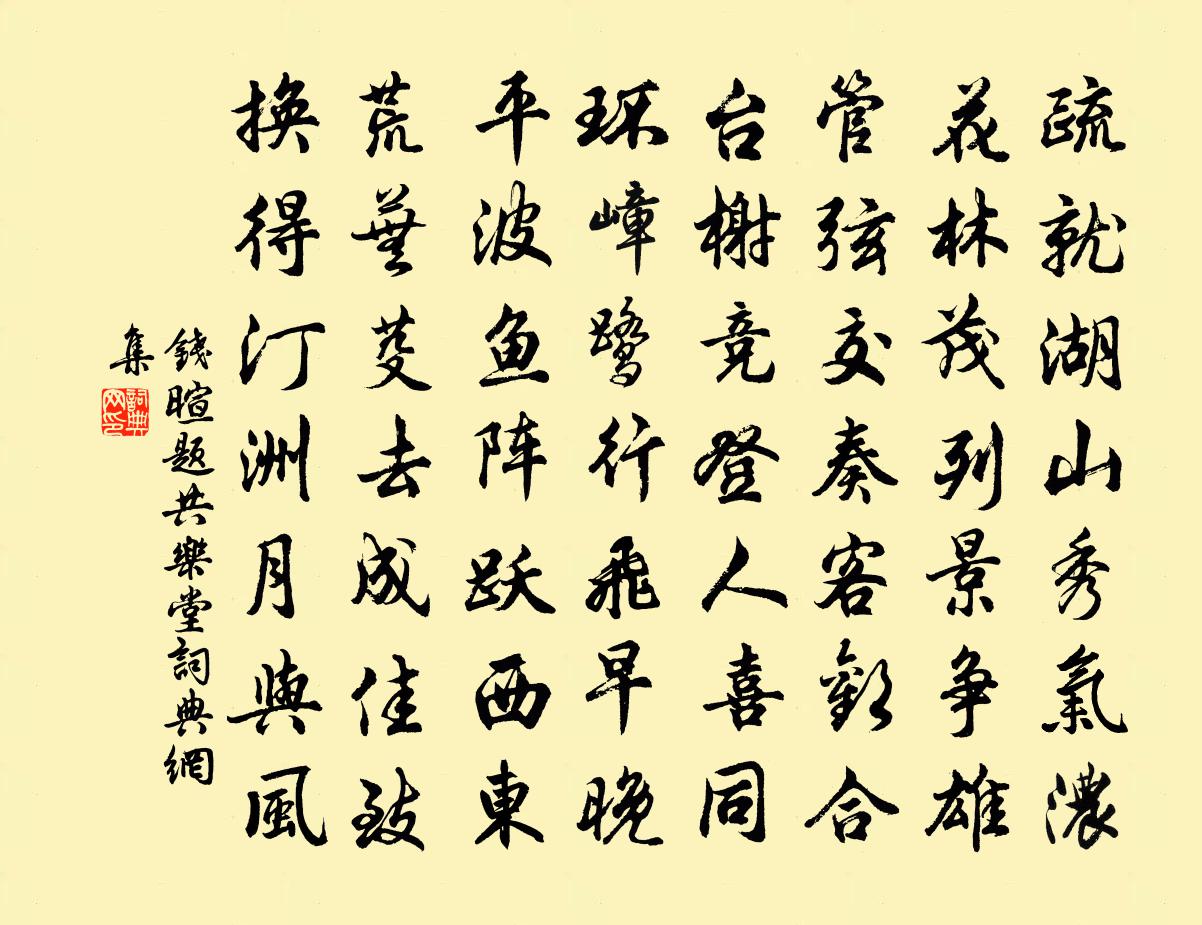 疏就湖山秀氣濃
花林茂列景争雄
管弦交奏客歡合
台榭竞登人喜同
环嶂鹭行飛早晚
平波鱼阵跃西東
荒蕪芟去成佳致
换得汀洲月與風
錢暄题共樂堂詞典網
集
詞典网印